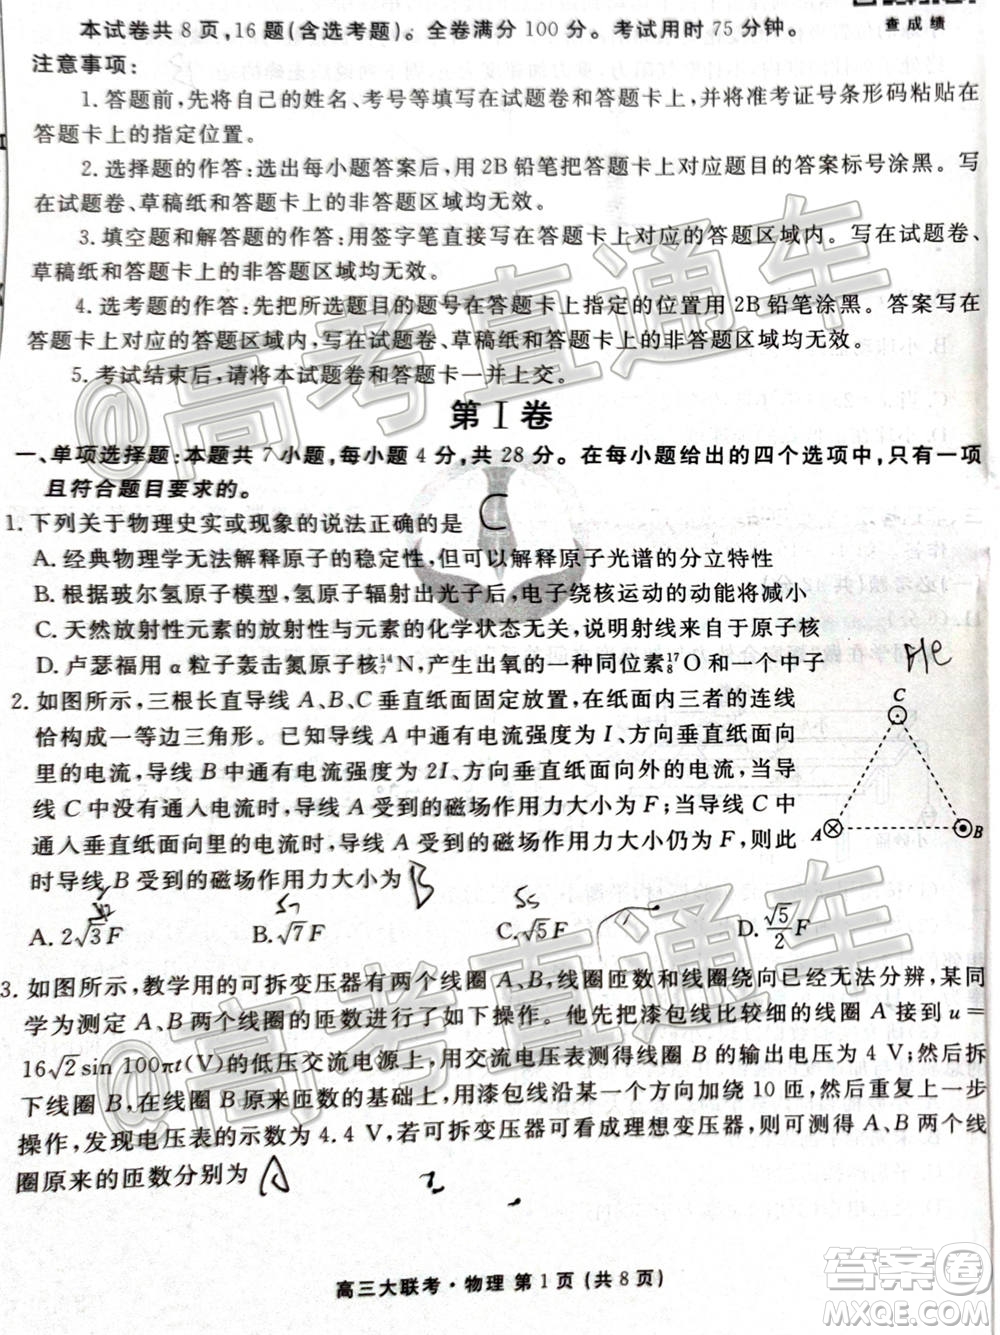 查成绩
本试卷共8页,16题(含选考题)。全卷满分100分。考试用时75分钟。
注意事项:
1. 答题前,先将自己的姓名、考号等填写在试题卷和答题卡上,并将准考证号条形码粘贴在
答题卡上的指定位置。
2. 选择题的作答:选出每小题答案后,用2B铅笔把答题卡上对应题目的答案标号涂黑。写
在试题卷、草稿纸和答题卡上的非答题区域均无效。
3. 填空题和解答题的作答:用签字笔直接写在答题卡上对应的答题区域内。写在试题卷、
草稿纸和答题卡上的非答题区域均无效。
4. 选考题的作答:先把所选题目的题号在答题卡上指定的位置用2B铅笔涂黑。答案写在
答题卡上对应的答题区域内,写在试题卷、草稿纸和答题卡上的非答题区域均无效。
5. 考试结束后,请将本试题卷和答题卡一并上交。
@高考直通车
第Ⅰ卷
一、单项选择题:本题共7小题,每小题4分,共28分。在每小题给出的四个选项中,只有一项
且符合题目要求的。
1. 下列关于物理史实或现象的说法正确的是 C
A. 经典物理学无法解释原子的稳定性,但可以解释原子光谱的分立特性
B. 根据玻尔氢原子模型,氢原子辐射出光子后,电子绕核运动的动能将减小
C. 天然放射性元素的放射性与元素的化学状态无关,说明射线来自于原子核
D. 卢瑟福用α粒子轰击氮原子核¹⁴₇N,产生出氧的一种同位素¹⁷₈O和一个中子
2. 如图所示,三根长直导线A、B、C垂直纸面固定放置,在纸面内三者的连线
恰构成一等边三角形。已知导线A中通有电流强度为I、方向垂直纸面向
里的电流,导线B中通有电流强度为2I、方向垂直纸面向外的电流,当导
线C中没有通入电流时,导线A受到的磁场作用力大小为F;当导线C中
通入垂直纸面向里的电流时,导线A受到的磁场作用力大小仍为F,则此
时导线B受到的磁场作用力大小为 B
C
A
B
A. 2√3F B. √7F C. √5F D. √5/2 F
3. 如图所示,教学用的可拆变压器有两个线圈A、B,线圈匝数和线圈绕向已经无法分辨,某同
学为测定A、B两个线圈的匝数进行了如下操作。他先把漆包线比较细的线圈A接到u=
16√2sin 100πt(V)的低压交流电源上,用交流电压表测得线圈B的输出电压为4 V;然后拆
下线圈B,在线圈B原来匝数的基础上,用漆包线沿某一个方向加绕10匝,再重复上一步
操作,发现电压表的示数为4.4 V,若可拆变压器可看成理想变压器,则可测得A、B两个线
圈原来的匝数分别为 A
@高考直通车
高三大联考·物理 第1页(共8页)
答案圈
MXQE.COM